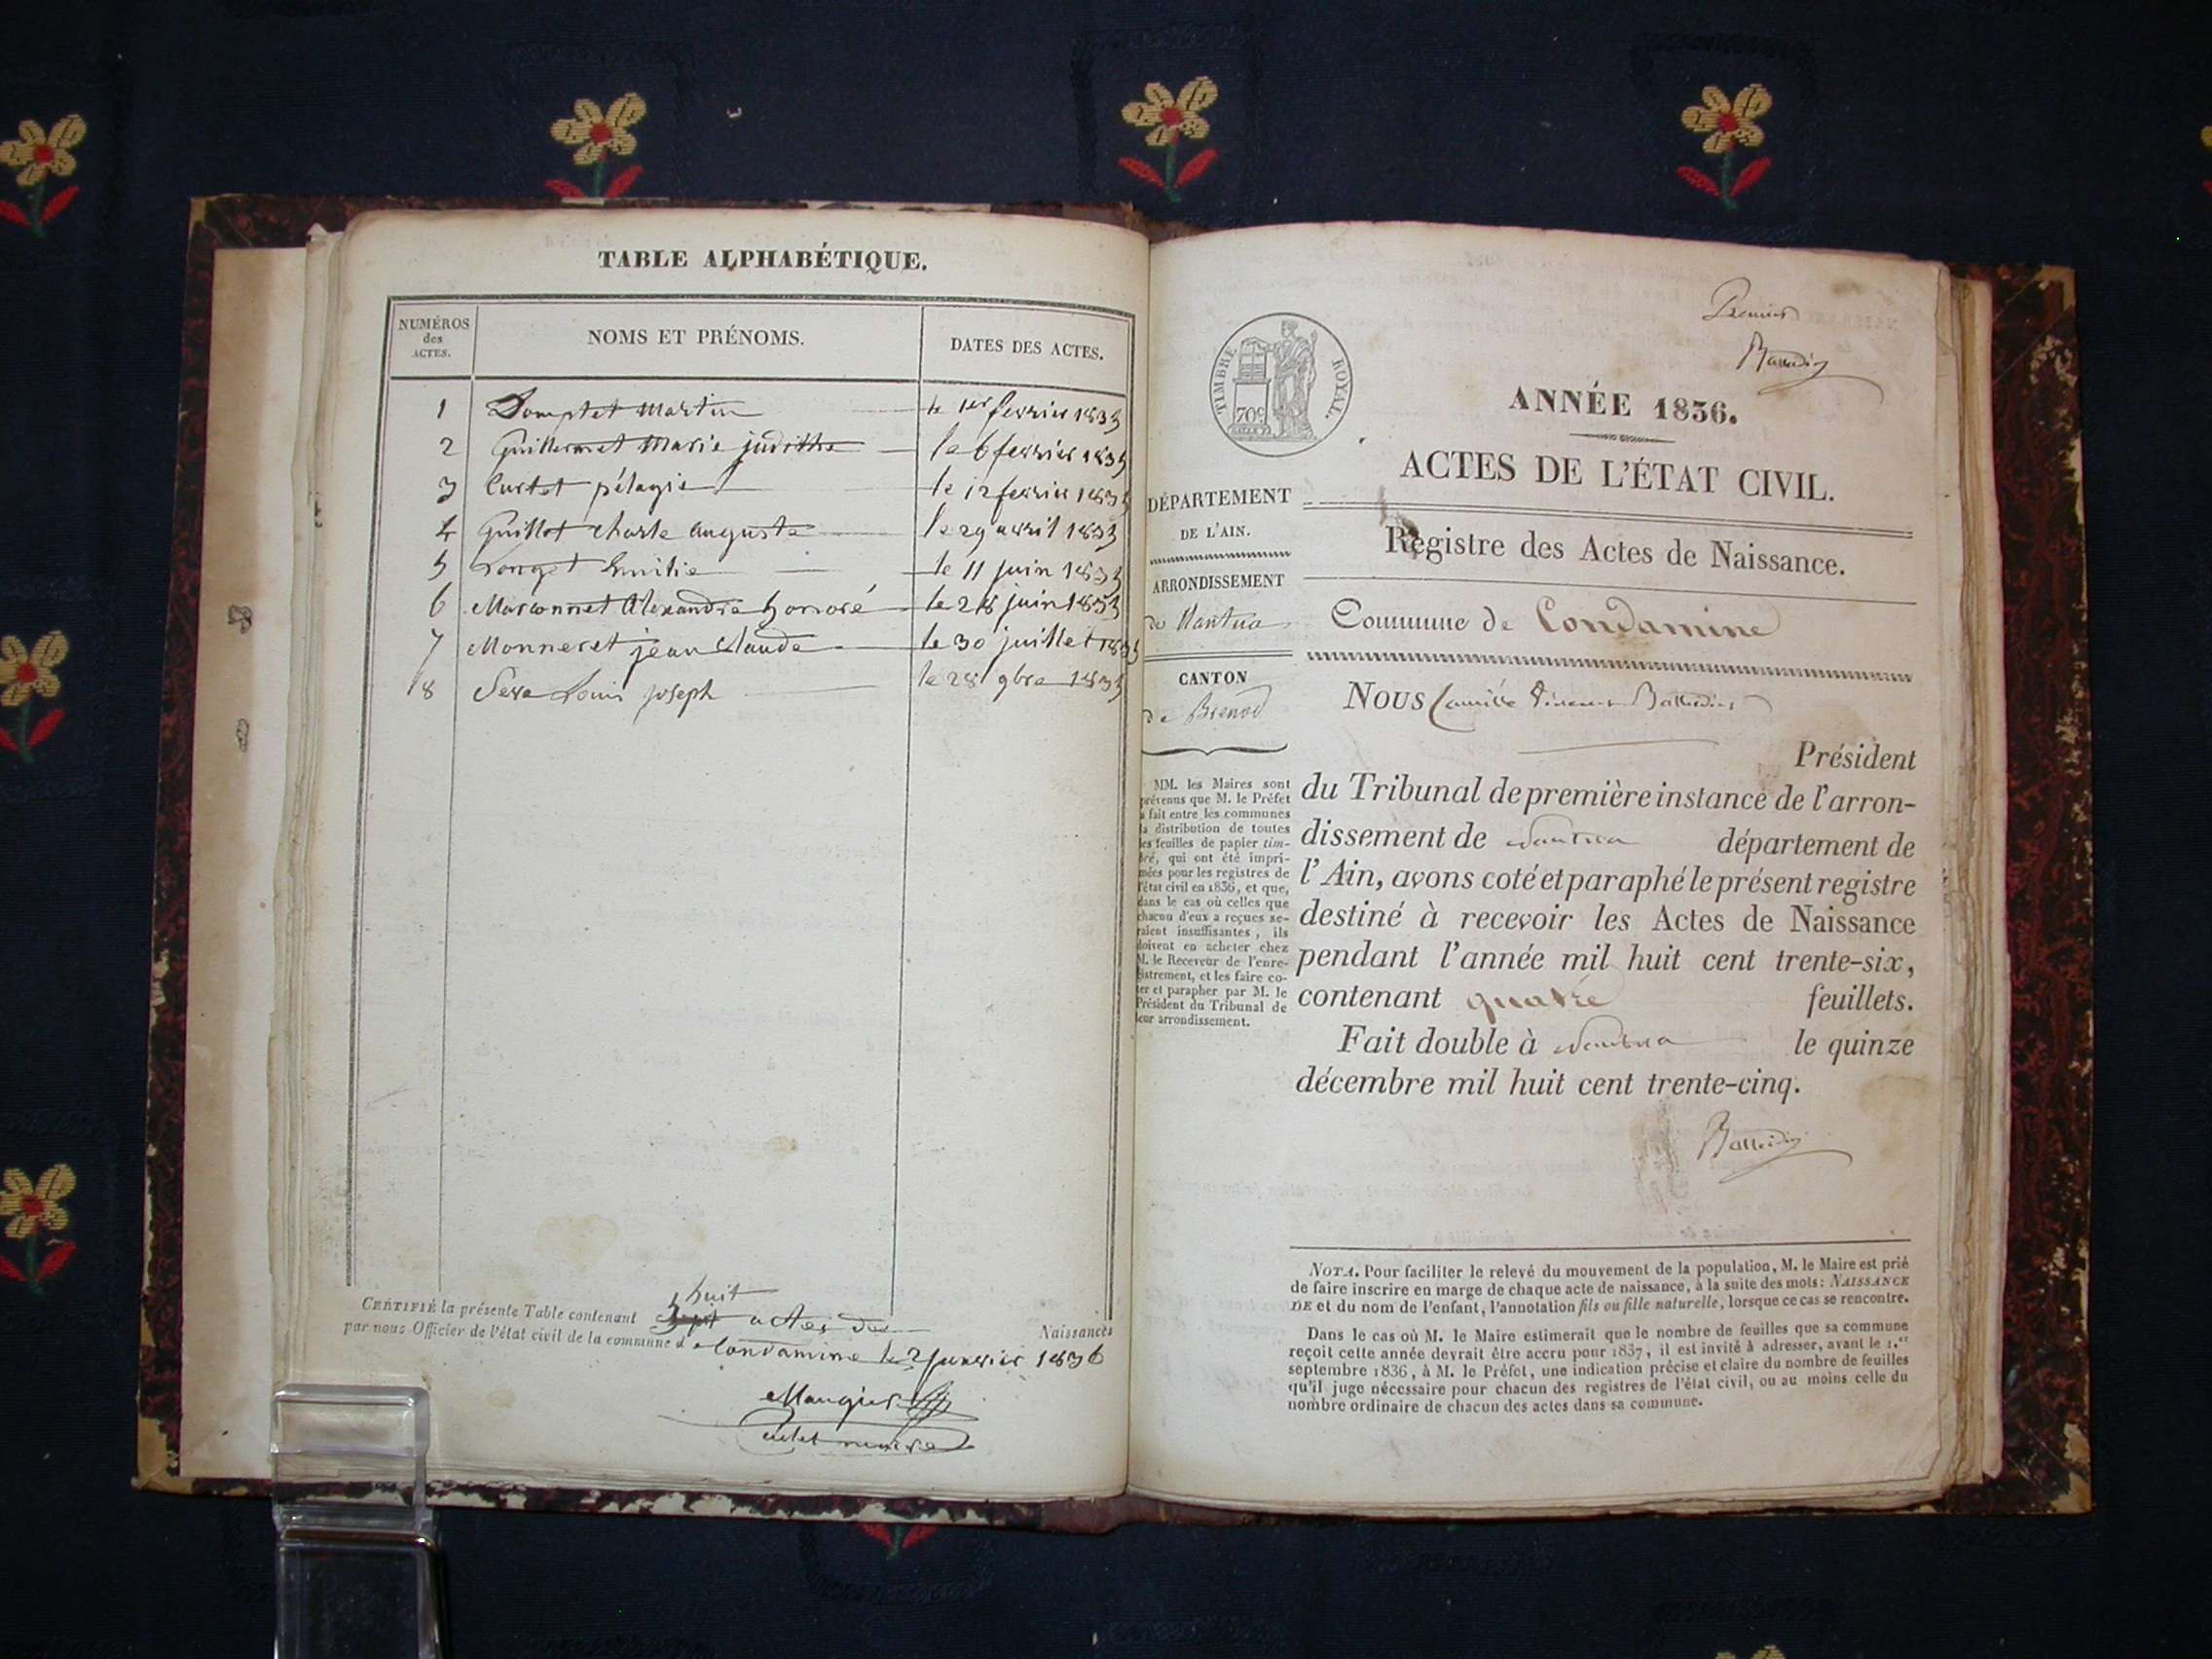 TABLE ALPHABÉTIQUE.
NUMÉROS
des
ACTES.
NOMS ET PRÉNOMS.
DATES DES ACTES.
1 Martin le 1er fevrier 1835
2 Guillermet Marie judithe le 6 fevrier 1835
3 Curtet pélagie le 12 fevrier 1835
4 Guillot charle auguste le 29 avril 1835
5 Longet Emilie le 11 juin 1835
6 Marconnet Alexandre honoré le 28 juin 1835
7 Monneret jean claude le 30 juillet 1835
8 Seve Louis joseph le 28 9bre 1835
huit
CERTIFIÉ la présente Table contenant sept actes de Naissances
par nous Officier de l'état civil de la commune d Condamine le 2 janvier 1836
Maugier
maire
Premier
TIMBRE ROYAL.
70c
ANNÉE 1836.
ACTES DE L'ÉTAT CIVIL.
Registre des Actes de Naissance.
Commune de Condamine
DÉPARTEMENT
DE L'AIN.
ARRONDISSEMENT
de Nantua
CANTON
de Brenod
MM. les Maires sont
prévenus que M. le Préfet
a fait entre les communes
la distribution de toutes
les feuilles de papier tim-
bré, qui ont été impri-
mées pour les registres de
l'état civil en 1836, et que,
dans le cas où celles que
chacun d'eux a reçues se-
raient insuffisantes, ils
doivent en acheter chez
M. le Receveur de l'enre-
gistrement, et les faire co-
ter et parapher par M. le
Président du Tribunal de
leur arrondissement.
NOUS Camille Vincent
Président
du Tribunal de première instance de l'arron-
dissement de Nantua département de
l'Ain, avons coté et paraphé le présent registre
destiné à recevoir les Actes de Naissance
pendant l'année mil huit cent trente-six,
contenant quatre feuillets.
Fait double à Nantua le quinze
décembre mil huit cent trente-cinq.
NOTA. Pour faciliter le relevé du mouvement de la population, M. le Maire est prié
de faire inscrire en marge de chaque acte de naissance, à la suite des mots: NAISSANCE
DE et du nom de l'enfant, l'annotation fils ou fille naturelle, lorsque ce cas se rencontre.
Dans le cas où M. le Maire estimerait que le nombre de feuilles que sa commune
reçoit cette année devrait être accru pour 1837, il est invité à adresser, avant le 1.er
septembre 1836, à M. le Préfet, une indication précise et claire du nombre de feuilles
qu'il juge nécessaire pour chacun des registres de l'état civil, ou au moins celle du
nombre ordinaire de chacun des actes dans sa commune.